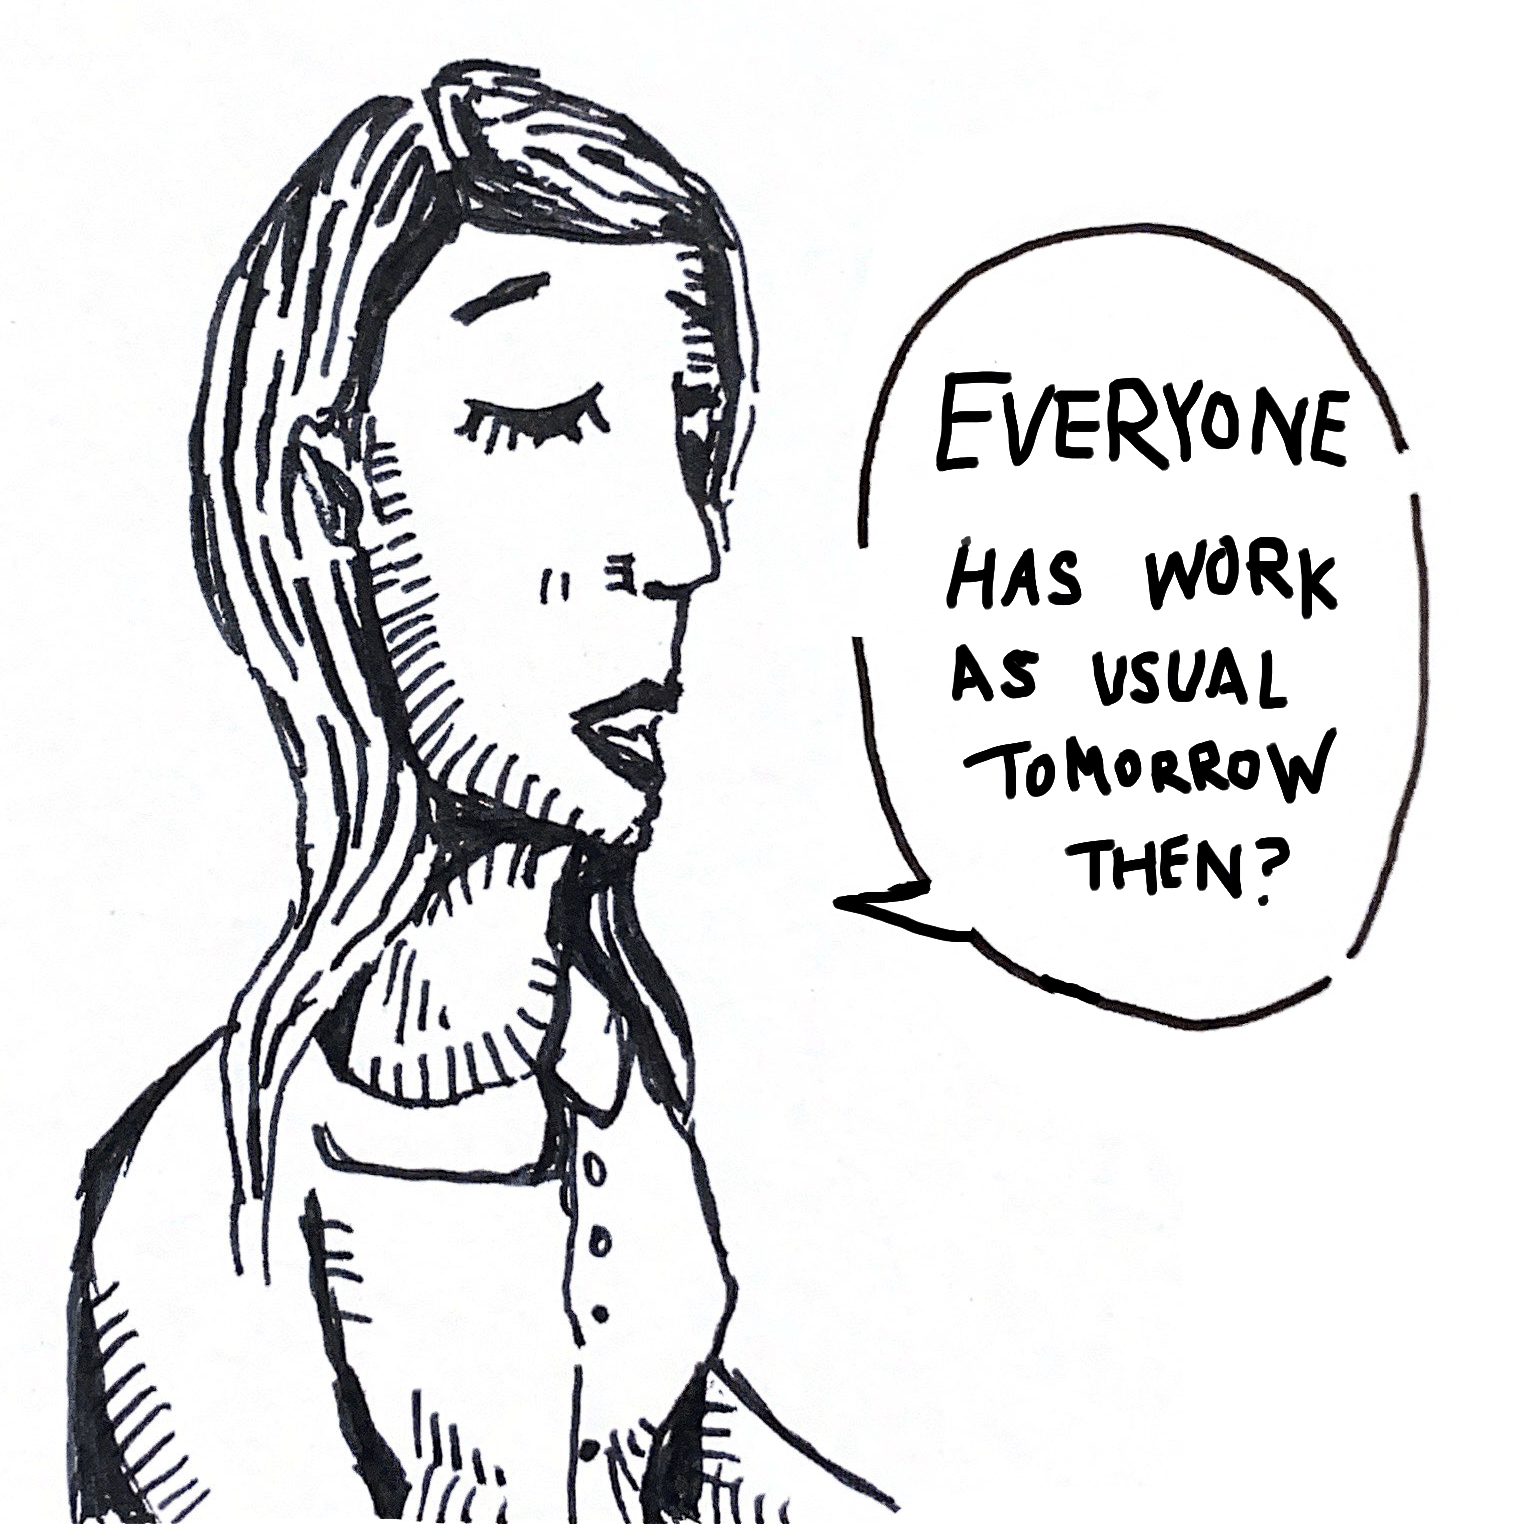 EVERYONE
HAS WORK
AS USUAL
TOMORROW
THEN?